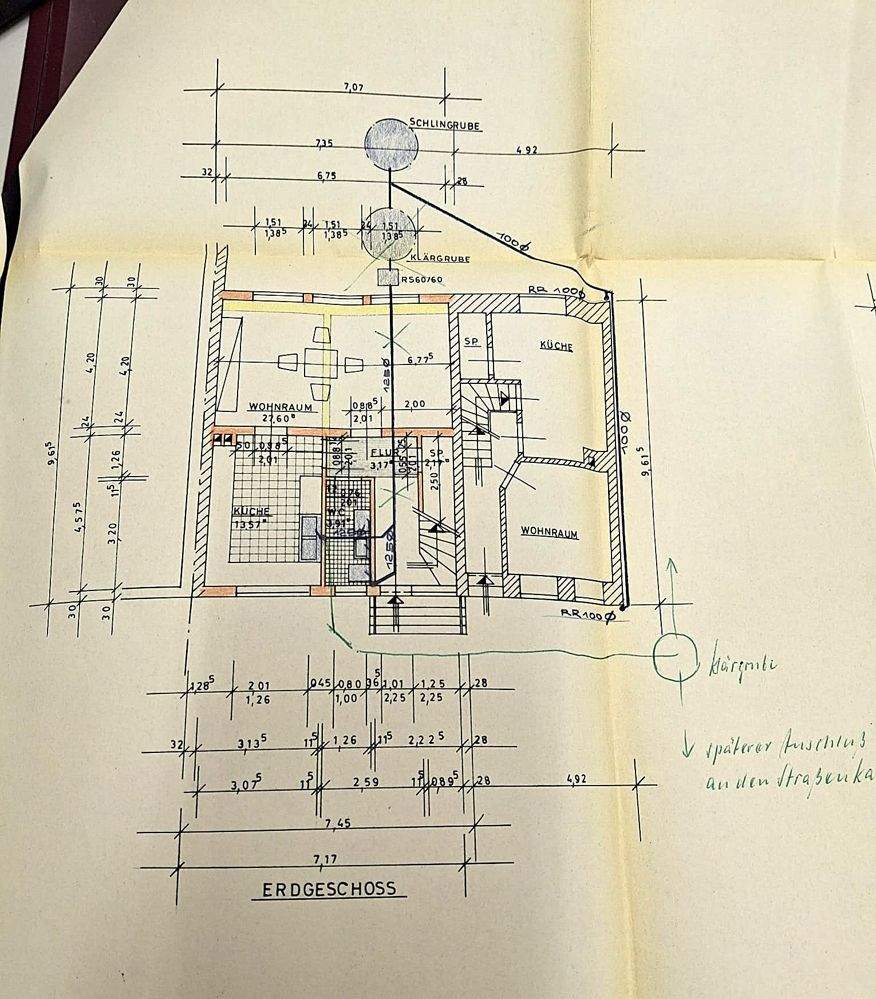 7,07
SCHLINGRUBE
7,35
4,92
32
6,75
28
1,51 24 1,51 24 1,51
1,38⁵ 1,38⁵ 1,38⁵
100Ø
KLÄRGRUBE
RS60/60
RR 100Ø
30
30
SP.
KÜCHE
4,20
4,20
6,77⁵
125Ø
WOHNRAUM
27,60
0,88⁵
2,01
2,00
24
24
100Ø
9,61⁵
9,61⁵
0,88⁵
2,01
FLUR
3,17
SP.
2,17
2,50
1,26
11⁵
KÜCHE
13,57
W.C.
3,91
4,57⁵
3,20
WOHNRAUM
125Ø
125Ø
30
30
RR 100Ø
Klärgrube
1,28⁵ 2,01 0,45 0,80 36⁵ 1,01 1,25 28
1,26 1,00 2,25 2,25
späterer Anschluß
an den Straßenka
32 3,13⁵ 11⁵ 1,26 11⁵ 2,22⁵ 28
3,07⁵ 11⁵ 2,59 11⁵ 0,89⁵ 28 4,92
7,45
7,17
ERDGESCHOSS